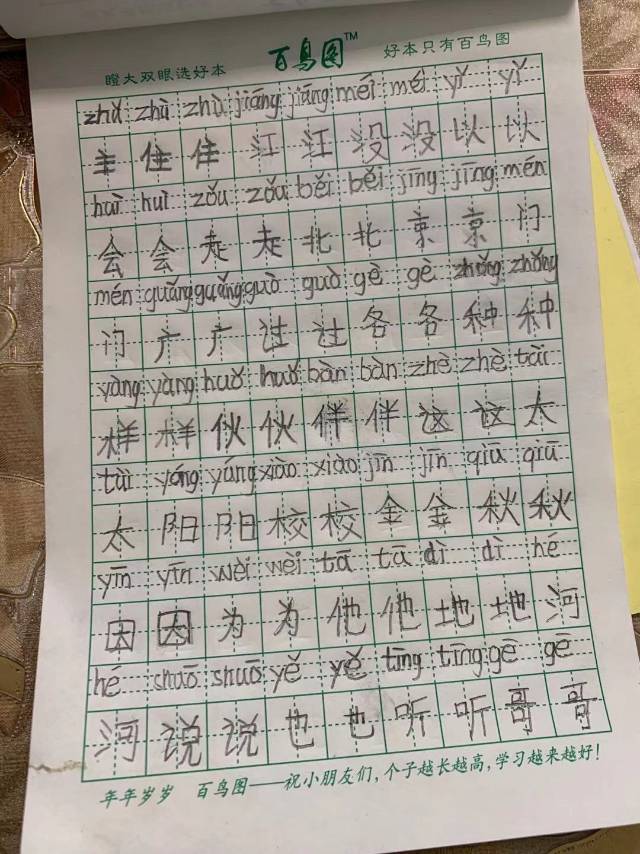 瞪大双眼选好本 百鸟图™ 好本只有百鸟图
zhǔ zhù zhù jiāng jiāng méi méi yǐ yǐ
主 住 住 江 江 没 没 以 以
huì huì zǒu zǒu běi běi jīng jīng mén
会 会 走 走 北 北 京 京 门
mén guǎng guǎng guò guò gè gè zhǒng zhǒng
门 广 广 过 过 各 各 种 种
yàng yàng huǒ huǒ bàn bàn zhè zhè tài
样 样 伙 伙 伴 伴 这 这 太
tài yáng yáng xiào xiào jīn jīn qiū qiū
太 阳 阳 校 校 金 金 秋 秋
yīn yīn wèi wèi tā tā dì dì hé
因 因 为 为 他 他 地 地 河
hé shuō shuō yě yě tīng tīng gē gē
河 说 说 也 也 听 听 哥 哥
年年岁岁 百鸟图——祝小朋友们，个子越长越高，学习越来越好！